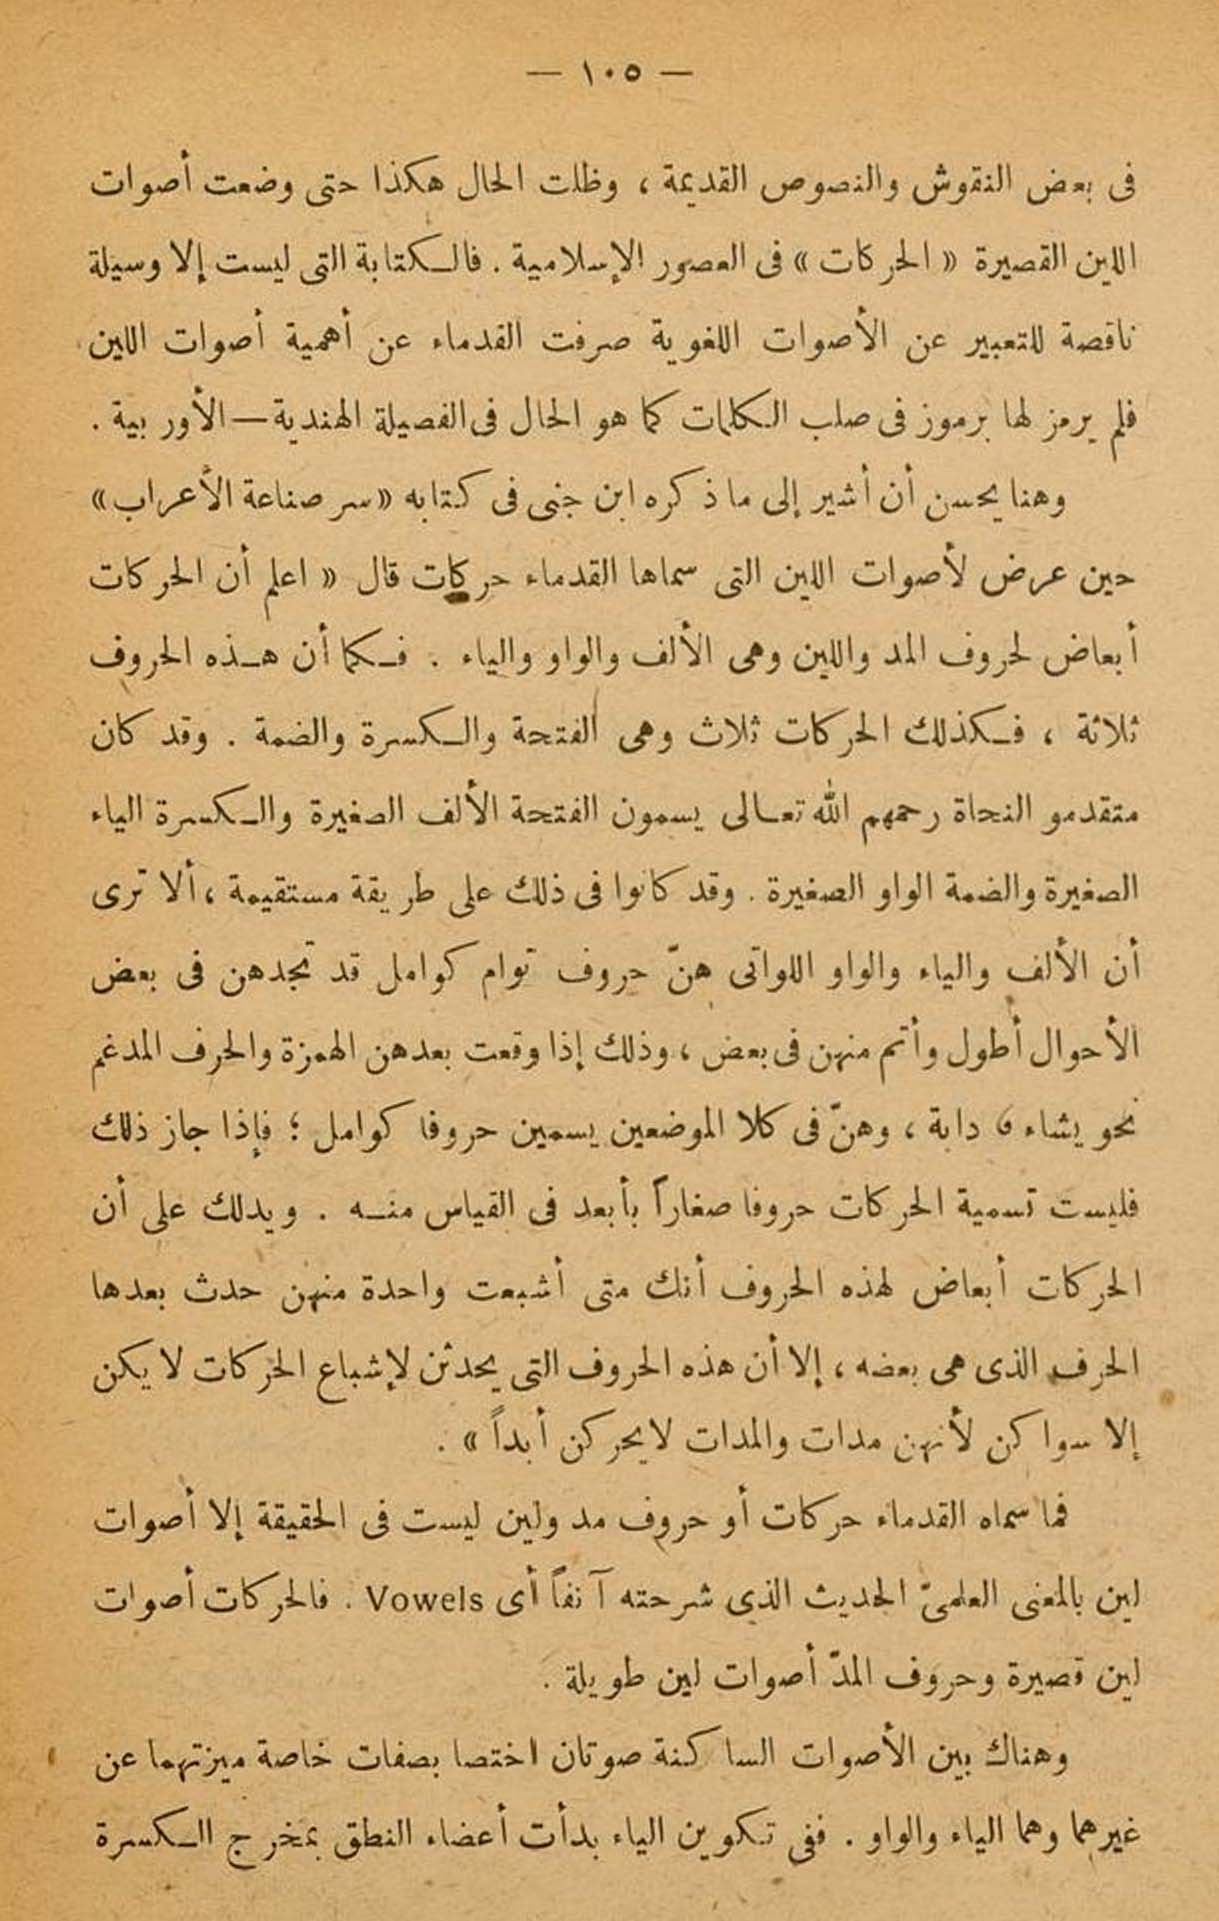 — ١٠٥ —
فى بعض النقوش والنصوص القديمة ، وظلت الحال هكذا حتى وضعت أصوات
اللين القصيرة « الحركات » فى العصور الإسلامية . فالكتابة التى ليست إلا وسيلة
ناقصة للتعبير عن الأصوات اللغوية صرفت القدماء عن أهمية أصوات اللين
فلم يرمز لها برموز فى صلب الكلمات كما هو الحال فى الفصيلة الهندية — الأوربية .
وهنا يحسن أن أشير إلى ما ذكره ابن جنى فى كتابه « سر صناعة الأعراب »
حين عرض لأصوات اللين التى سماها القدماء حركات قال « اعلم أن الحركات
أبعاض لحروف المد واللين وهى الألف والواو والياء . فكما أن هذه الحروف
ثلاثة ، فكذلك الحركات ثلاث وهى الفتحة والكسرة والضمة . وقد كان
متقدمو النحاة رحمهم الله تعالى يسمون الفتحة الألف الصغيرة والكسرة الياء
الصغيرة والضمة الواو الصغيرة . وقد كانوا فى ذلك على طريقة مستقيمة ، ألا ترى
أن الألف والياء والواو اللواتى هنّ حروف توام كوامل قد تجدهن فى بعض
الأحوال أطول وأتم منهن فى بعض ، وذلك إذا وقعت بعدهن الهمزة والحرف المدغم
نحو يشاء ، دابة ، وهنّ فى كلا الموضعين يسمين حروفا كوامل ؛ فإذا جاز ذلك
فليست تسمية الحركات حروفا صغاراً بأبعد فى القياس منه . ويدلك على أن
الحركات أبعاض لهذه الحروف أنك متى أشبعت واحدة منهن حدث بعدها
الحرف الذى هى بعضه ، إلا أن هذه الحروف التى يحدثن لإشباع الحركات لا يكن
إلا سواكن لأنهن مدات والمدات لا يحركن أبداً » .
فما سماه القدماء حركات أو حروف مد ولين ليست فى الحقيقة إلا أصوات
لين بالمعنى العلمىّ الحديث الذى شرحته آنفاً أى Vowels . فالحركات أصوات
لين قصيرة وحروف المدّ أصوات لين طويلة .
وهناك بين الأصوات الساكنة صوتان اختصا بصفات خاصة ميزتهما عن
غيرهما وهما الياء والواو . ففى تكوين الياء بدأت أعضاء النطق بمخرج الكسرة